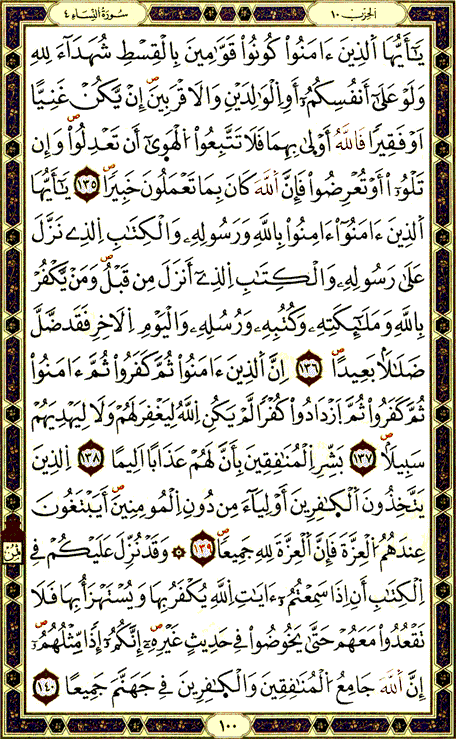 سُورَةُ النِّسَاءِ ٤
الْحِزْبُ ١٠
يَـٰٓأَيُّهَا اَ۬لذِينَ ءَامَنُواْ كُونُواْ قَوَّـٰمِينَ بِالْقِسْطِ شُهَدَآءَ لِلهِ
وَلَوْ عَلَىٰٓ أَنفُسِكُمُۥٓ أَوِ اِ۬لْوَٰلِدَيْنِ وَالَاقْرَبِينَۖ إِنْ يَّكُنْ غَنِيًّا
اَوْ فَقِيرًا فَاللَّهُ أَوْلَىٰ بِهِمَا فَلَا تَتَّبِعُواْ اُ۬لْهَوَىٰٓ أَن تَعْدِلُواْۖ وَإِن
تَلْوُۥٓاْ أَوْ تُعْرِضُواْ فَإِنَّ اَ۬للَّهَ كَانَ بِمَا تَعْمَلُونَ خَبِيرًاۖ ١٣٥ يَـٰٓأَيُّهَا
اَ۬لذِينَ ءَامَنُوٓاْ ءَامِنُواْ بِاللَّهِ وَرَسُولِهِۦ وَالْكِتَـٰبِ اِ۬لذِے نَزَّلَ
عَلَىٰ رَسُولِهِۦ وَالْكِتَـٰبِ اِ۬لذِےٓ أَنزَلَ مِن قَبْلُۖ وَمَنْ يَّكْفُرْ
بِاللَّهِ وَمَلَـٰٓئِكَتِهِۦ وَكُتُبِهِۦ وَرُسُلِهِۦ وَالْيَوْمِ اِ۬لَاخِرِ فَقَد ضَّلَّ
ضَلَـٰلَاۢ بَعِيدًاۖ ١٣٦ اِنَّ اَ۬لذِينَ ءَامَنُواْ ثُمَّ كَفَرُواْ ثُمَّ ءَامَنُواْ
ثُمَّ كَفَرُواْ ثُمَّ اَ۪زْدَادُواْ كُفْرًا لَّمْ يَكُنِ اِ۬للَّهُ لِيَغْفِرَ لَهُمْ وَلَا لِيَهْدِيَهُمْ
سَبِيلَاۖ ١٣٧ بَشِّرِ اِ۬لْمُنَـٰفِقِينَ بِأَنَّ لَهُمْ عَذَابًا اَلِيمًا ١٣٨ اِ۬لذِينَ
يَتَّخِذُونَ اَ۬لْكَـٰفِرِينَ أَوْلِيَآءَ مِن دُونِ اِ۬لْمُومِنِينَۖ أَيَبْتَغُونَ
عِندَهُمُ اُ۬لْعِزَّةَ فَإِنَّ اَ۬لْعِزَّةَ لِلهِ جَمِيعًاۖ ١٣٩ ۞ وَقَدْ نُزِّلَ عَلَيْكُمْ فِے
اِ۬لْكِتَـٰبِ أَنِ اِذَا سَمِعْتُمُۥٓ ءَايَـٰتِ اِ۬للَّهِ يُكْفَرُ بِهَا وَيُسْتَهْزَأُ بِهَا فَلَا
تَقْعُدُواْ مَعَهُمْ حَتَّىٰ يَخُوضُواْ فِے حَدِيثٍ غَيْرِهِۦٓۖ إِنَّكُمُۥٓ إِذًا مِّثْلُهُمُۥٓۖ
إِنَّ اَ۬للَّهَ جَامِعُ اُ۬لْمُنَـٰفِقِينَ وَالْكَـٰفِرِينَ فِے جَهَنَّمَ جَمِيعًا ١٤٠
١٠٠